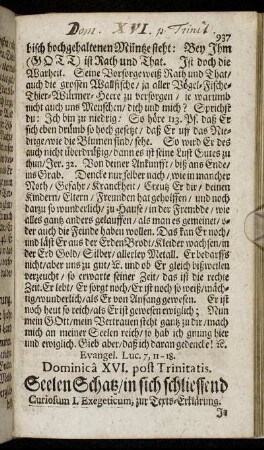 Dom. XVI. p. Trinit.
937
bisch hochgehaltenen Müntze steht: Bey Ihm
(GOTT) ist Rath und That. Ist doch die
Warheit. Seine Vorsorge weiß Rath und That/
auch die grossen Wallfische / ja aller Vögel-Fische-
Thier-Würmer-Heere zu versorgen / ie warumb
nicht auch uns Menschen/ dich und mich? Sprichst
du: Ich bin zu niedrig: So höre 113. Pf. daß Er
sich eben drümb so hoch gesetzt / daß Er auf das Nied-
rige / wie die Blumen sind / sehe. So wird Er des
auch nicht überdrüßig / dann es ist seine Lust Gutes zu
thun/Jer. 32. Von deiner Ankunfft / biß ans Ende/
ins Grab. Dencke nur selber nach / wie in mancher
Noth / Gefahr / Kranckheit / Creutz Er dir / deinen
Kindern / Eltern / Freunden hat geholffen / und noch
darzu so wunderlich / zu Hause / in der Fremdde / wie
alles gantz anders gelauffen / als man es gemeinet / o-
der auch die Feinde haben wollen. Das kan Er noch/
und läst Er aus der Erden Brodt / Kleider wachsen / in
der Erd Gold / Silber / allerley Metall. Er bedarffs
nicht / aber uns zu gut / 2c. und ob Er gleich bißweilen
verzeucht / so erwarte seiner Zeit / das ist die rechte
Zeit. Er lebt / Er sorgt noch / Er ist noch so weiß / mäch-
tig / wunderlich / als Er von Anfang gewesen. Er ist
noch heut so reich / als Er ist gewesen ewiglich; Nun
mein Gott / mein Vertrauen steht gantz zu dir / mach
mich an meiner Seelen reich / so hab ich gnung hier
und ewiglich. Gieb aber / daß ich daran gedencke! 2c.
Evangel. Luc. 7, 11-18.
Dominicâ XVI. post Trinitatis.
Seelen Schatz / in sich schliessend
Curiosum I. Exegeticum, zur Texts-Erklärung.